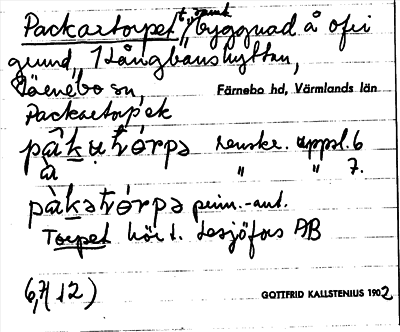 Packartorpet, t, samt byggnad å ofri
grund, Långbanshyttan,
Färnebo sn, Färnebo hd, Värmlands län
Packartorpet
renskr. uppl. 6
" " 7.
pàkatórpə prim.-ant.
Torpet hör t. Lesjöfors AB
6,7(12)
GOTTFRID KALLSTENIUS 1902